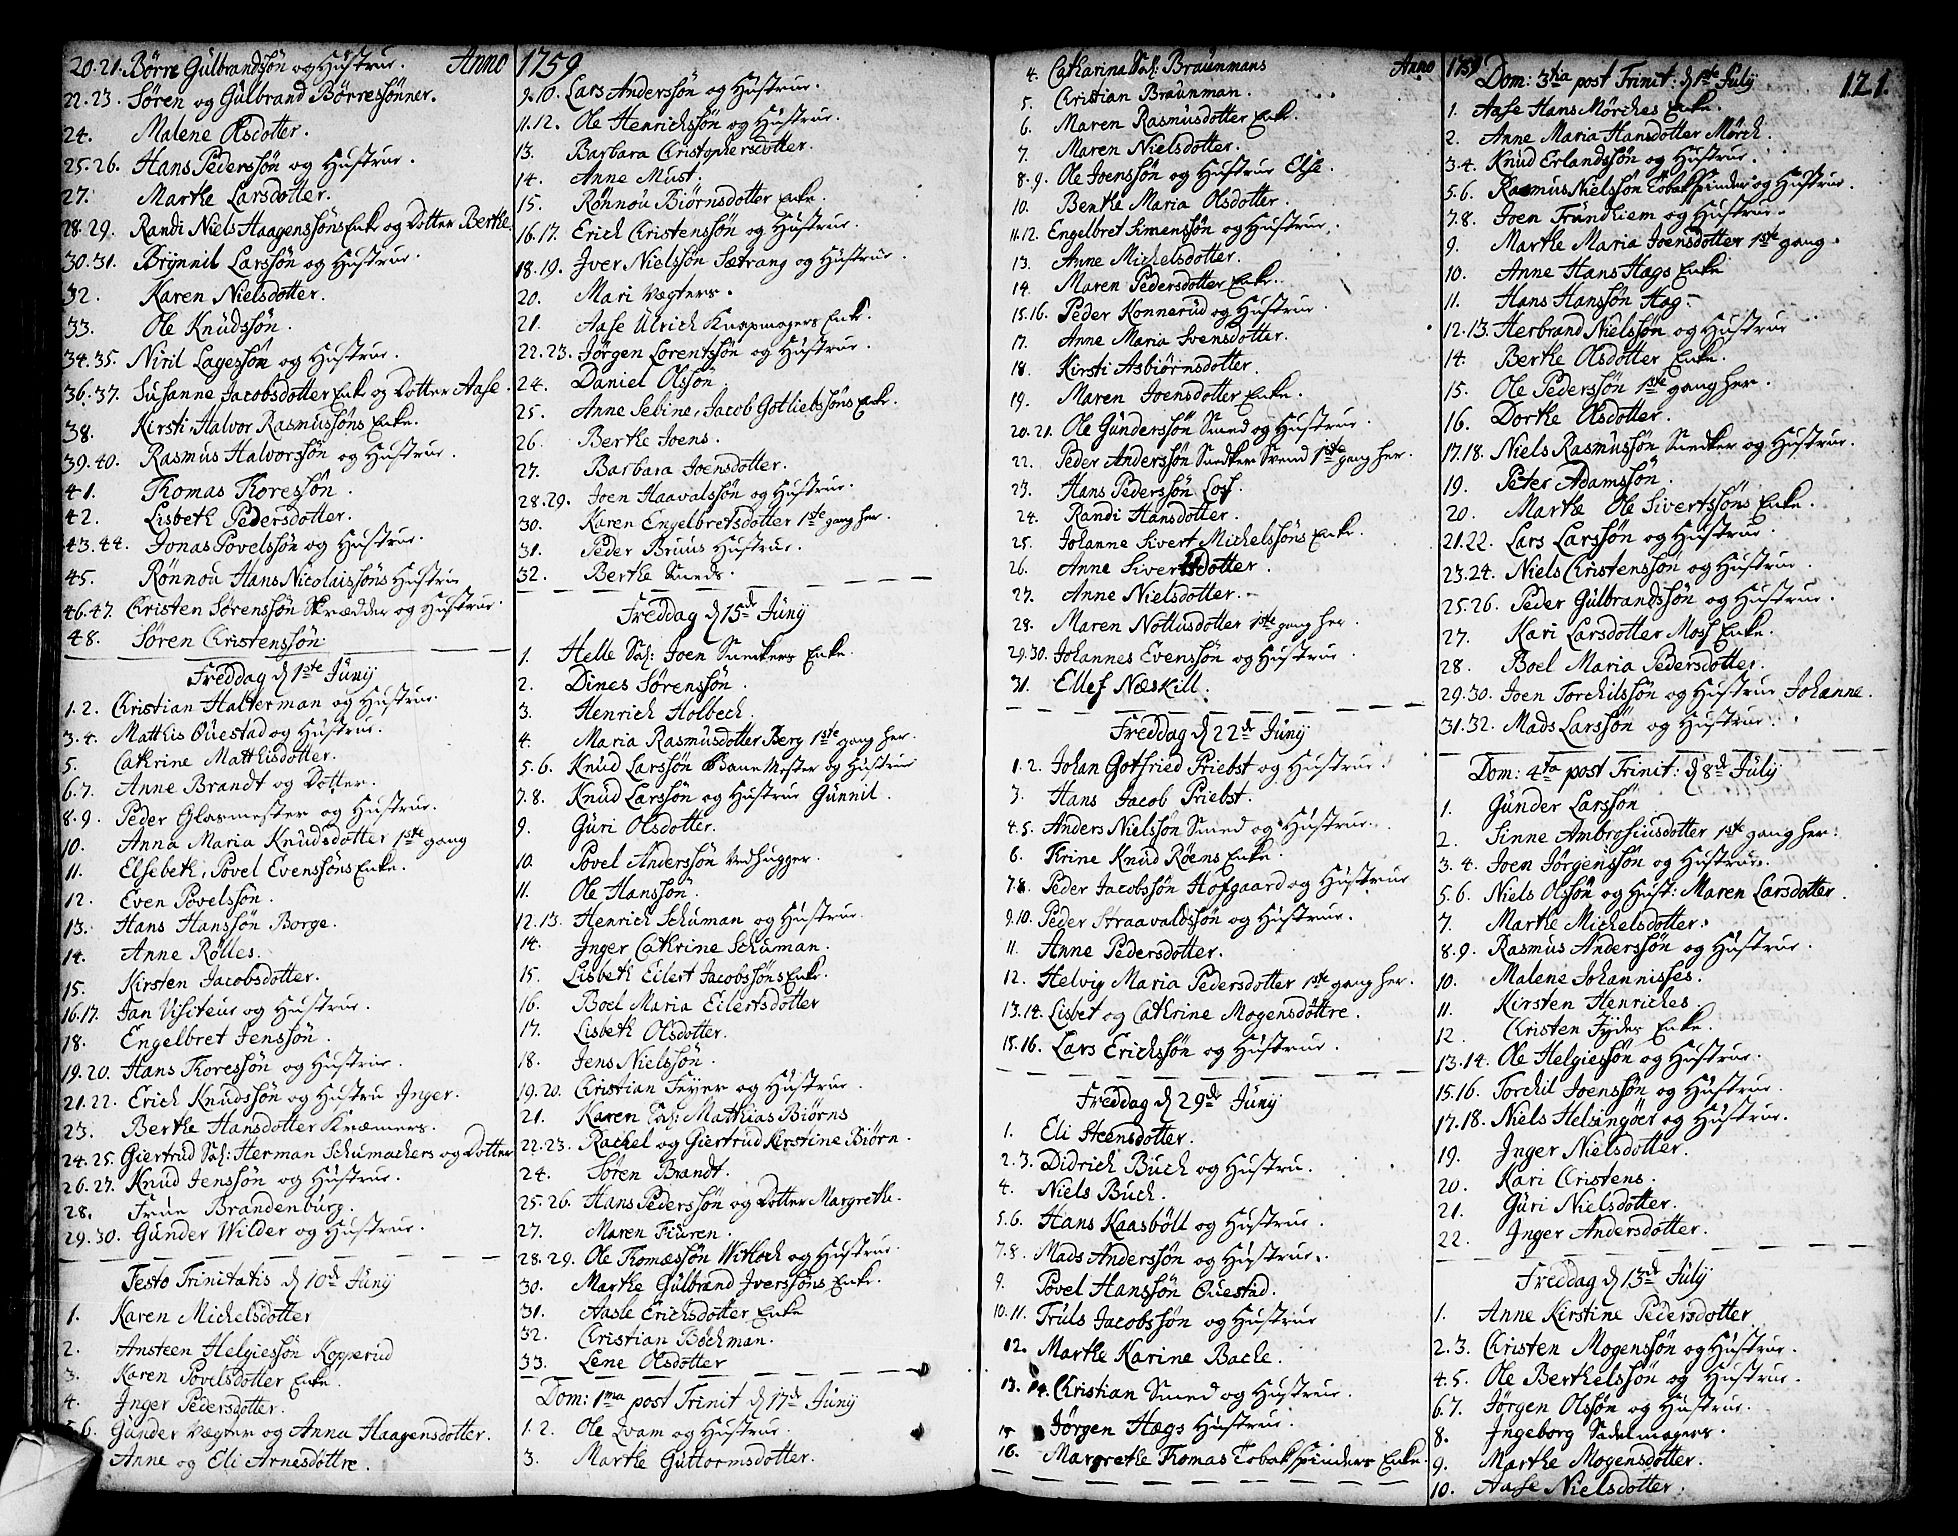 20.21. Börre Gülbrandsön og Hüstrue. Anno
22.23. Sören og Gülbrand Börresönner.
24. Malene Olsdotter.
25.26. Hans Pederssön og Hüstrue.
27. Marthe Larsdotter.
28.29. Randi Niels Haagenssöns Enke og Dotter Berthe.
30.31. Brynnil Larssön og Hüstrue.
32. Karen Nielsdotter.
33. Ole Knüdssön.
34.35. Niril Lagessön og Hüstrue.
36.37. Susanne Jacobsdotter Enke og Dotter Aase.
38. Kirsti Halvor Rasmussöns Enke.
39.40. Rasmus Halvorssön og Hüstrue.
41. Thomas Thoressön.
42. Lisbeth Pedersdotter.
43.44. Jonas Povelssön og Hüstrue.
45. Rönnou Hans Nicolaissöns Hüstrue
46.47. Christen Sörenssön Skrædder og Hüstrue.
48. Sören Christenssön.
Freddag d 1ste Jünij
1.2. Christian Halterman og Hüstrue.
3.4. Matthis Questad og Hüstrue.
5. Cathrine Matthisdotter.
6.7. Anne Brandt og Dotter.
8.9. Peder Glasmester og Hüstrue.
10. Anna Maria Knüdsdotter 1ste gang
11. Elsebeth, Povel Evenssöns Enke.
12. Even Povelsön.
13. Hans Hanssön Borge.
14. Anne Rölles.
15. Kirsten Jacobsdotter.
16.17. Jan Visiteur og Hüstrue.
18. Engelbret Jenssön.
19.20. Hans Thoressön og Hüstrue.
21.22. Erich Knüdssön og Hüstru Inger.
23. Berthe Hansdotter Kræmers.
24.25. Giertrud Sal: Herman Schumachers og Dotter
26.27. Knüd Jenssön og Hüstrue.
28. Frue Brandenbürg.
29.30. Günder Wilder og Hüstrue.
Festo Trinitatis d 10de Jünij
1. Karen Michelsdotter
2. Ansteen Helgiessön Kopperud
3. Karen Povelsdotter Enke.
4. Inger Pedersdotter.
5.6. Günder Vægter og Anna Haagensdotter.
Anne og Eli Arnesdöttre.
1759
9.10. Lars Anderssön og Hüstrue.
11.12. Ole Henrichssön og Hüstrue.
13. Barbara Christophersdotter.
14. Anne Must.
15. Rönnou Biörnsdotter Enke.
16.17. Erich Christenssön og Hüstrue.
18.19. Iver Nielssön Sætrang og Hüstrue.
20. Mari Vægters.
21. Aase Ulrich Knapmagers Enke.
22.23. Jörgen Lorentssön og Hüstrue.
24. Daniel Olssön.
25. Anne Sebine, Jacob Gotliebssöns Enke.
26. Berthe Joens.
27. Barbara Joensdotter.
28.29. Joen Haavalssön og Hüstrue.
30. Karen Engelbretsdotter 1ste gang her.
31. Peder Bruus Hüstrue.
32. Berthe Smeds.
Freddag d 15de Jünij
1. Helle Sal: Joen Snedkers Enke.
2. Dines Sörenssön.
3. Henrich Holbech.
4. Maria Rasmüsdotter Berg 1ste gang her.
5.6. Knüd Larssön Banemester og Hüstrue
7.8. Knüd Larssön og Hüstrue Günnil.
9. Güri Olsdotter.
10. Povel Anderssön Vedhugger.
11. Ole Hanssön.
12.13. Henrich Schuman og Hüstrue.
14. Inger Cathrine Schuman.
15. Lisbeth Eilert Jacobssöns Enke.
16. Boel Maria Eilertsdotter
17. Lisbeth Olsdotter.
18. Jens Nielssön.
19.20. Christian Feyer og Hüstrue.
21. Karen Sal: Mathias Biörns
22.23. Rachel og Giertrud Kirstine Biörn.
24. Sören Brandt.
25.26. Hans Pederssön og Dotter Margrethe.
27. Maren Fiuren.
28.29. Ole Thomæssön Witloch og Hüstrue.
30. Marthe Gülbrand Iverssöns Enke.
31. Aasle Erichsdotter Enke
32. Christian Böchman.
33. Lene Olsdotter
Dom: 1ma post Trinit d 17de Jünij
1.2. Ole Qvam og Hüstrue.
3. Marthe Guttormsdotter.
4. Catharina Sal: Braunmans Anno
5. Christian Braunman.
6. Maren Rasmusdotter Enke.
7. Maren Nielsdotter.
8.9. Ole Joenssön og Hüstrue Else.
10. Benthe Maria Olsdotter.
11.12. Engelbret Simenssön og Hüstrue.
13. Anne Michelsdotter.
14. Maren Pedersdotter Enke.
15.16. Peder Konnerüd og Hüstrue.
17. Anne Maria Svensdotter.
18. Kirsti Asbiörnsdotter.
19. Maren Joensdotter Enke.
20.21. Ole Günderssön Smed og Hüstrue.
22. Peder Anderssön Snedker Svend 1ste gang her.
23. Hans Pederssön Loss.
24. Randi Hansdotter.
25. Johanne Sivert Michelssöns Enke.
26. Anne Sivertsdotter.
27. Anne Nielsdotter.
28. Maren Nottusdotter 1ste gang her.
29.30. Johannes Evenssön og Hüstrue
31. Ellef Næskill.
Freddag d 22de Jünij
1.2. Johan Gotfried Priebst og Hüstrue.
3. Hans Jacob Priebst.
4.5. Anders Nielssön Smed og Hüstrue.
6. Thrine Knüd Röens Enke.
7.8. Peder Jacobssön Hofgaard og Hüstrue
9.10. Peder Straavaldssön og Hüstrue.
11. Anne Pedersdotter.
12. Helvig Maria Pedersdotter 1ste gang her.
13.14. Lisbet og Cathrine Mogensdöttre.
15.16. Lars Erichssön og Hüstrue.
Freddag d 29de Jünij
1. Eli Steensdotter.
2.3. Didrich Buch og Hüstru.
4. Niels Buch.
5.6. Hans Kaasböll og Hüstrue.
7.8. Mads Anderssön og Hüstrue.
9. Povel Hanssön Questad.
10.11. Trüls Jacobssön og Hüstrue
12. Marthe Karine Bache.
13.14. Christian Smed og Hüstrue.
15 Jörgen Hægs Hüstrue.
16. Margrethe Thomas Tobakspinders Enke.
1759 121.
Dom: 3tia post Trinit: d 1ste Julij
1. Aase Hans Mörches Enke.
2. Anne Maria Hansdotter Mörch.
3.4. Knüd Erlandssön og Hüstrue.
5.6. Rasmus Nielssön Tobakspinder og Hustrue.
7.8. Joen Trundhiem og Hüstrue.
9. Marthe Maria Joensdotter 1ste gang.
10. Anne Hans Hægs Enke
11. Hans Hanssön Hag.
12.13. Herbrand Nielssön og Hüstrue
14. Berthe Olsdotter Enke.
15. Ole Pederssön 1ste gang her.
16. Dorthe Olsdotter.
17.18. Niels Rasmussön Snedker og Hüstrue.
19. Peter Adamssön.
20. Marthe Ole Sivertssöns Enke.
21.22. Lars Larssön og Hüstrue.
23.24. Niels Christenssön og Hüstrue.
25.26. Peder Gülbrandssön og Hüstrue.
27. Kari Larsdotter Moss Enke.
28. Boel Maria Pedersdotter.
29.30. Joen Torchilssön og Hüstrue Johanne.
31.32. Mads Larssön og Hüstrue.
Dom: 4ta post Trinit: d 8de Jülij
1. Günder Larssön
2. Sinne Ambrosiusdotter 1ste gang her.
3.4. Joen Jörgenssön og Hüstrue.
5.6. Niels Olssön og Hust: Maren Larsdotter.
7. Marthe Michelsdotter.
8.9. Rasmus Anderssön og Hüstrue.
10. Malene Johannisses.
11. Kirsten Henriches.
12 Christen Jyders Enke.
13.14. Ole Helgiessön og Hüstrue.
15.16. Torchil Joenssön og Hüstrue.
17.18. Niels Helsingöer og Hüstrue.
19. Inger Nielsdotter.
20. Kari Christens.
21. Güri Nielsdotter.
22. Inger Andersdotter.
Freddag d 13de Jülij
1. Anne Kirstine Pedersdotter
2.3. Christen Mogenssön og Hüstrue.
4.5. Ole Berthelssön og Hüstrue.
6.7. Jörgen Olssön og Hüstrue.
8. Ingeborg Sadelmagers.
9. Marthe Mogensdotter.
10. Aase Nielsdotter.